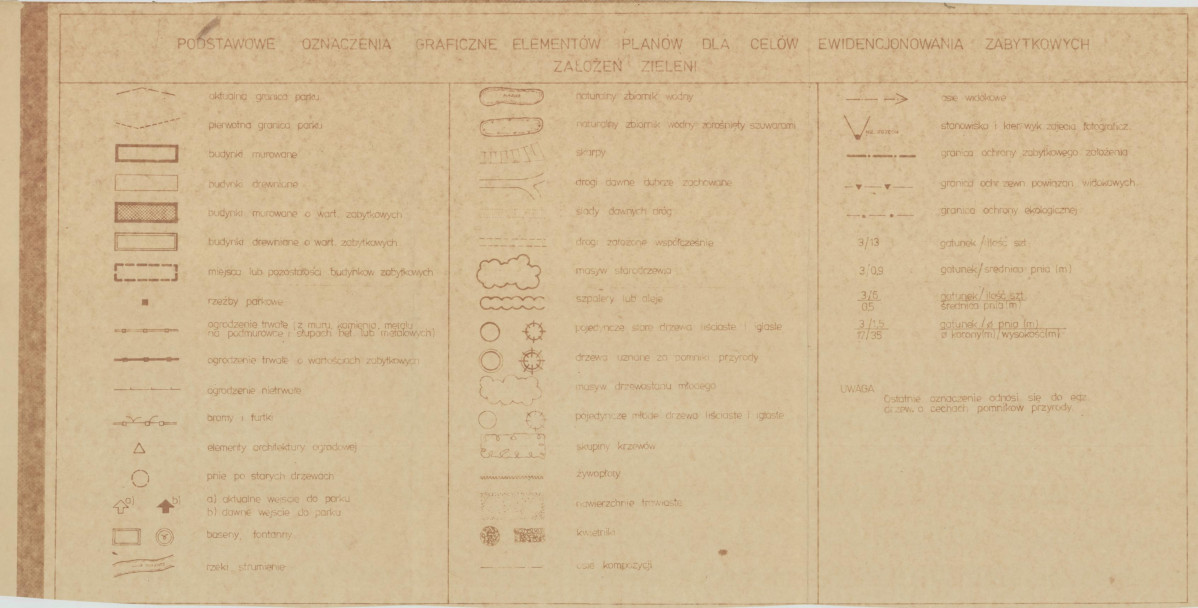 PODSTAWOWE OZNACZENIA GRAFICZNE ELEMENTÓW PLANÓW DLA CELÓW EWIDENCJONOWANIA ZABYTKOWYCH
ZAŁOŻEŃ ZIELENI
aktualna granica parku
pierwotna granica parku
budynki murowane
budynki drewniane
budynki murowane o wart. zabytkowych
budynki drewniane o wart. zabytkowych
miejsca lub pozostałości budynków zabytkowych
rzeźby parkowe
ogrodzenie trwałe (z muru, kamienia, metalu
na podmurówce i słupach bet. lub metalowych)
ogrodzenie trwałe o wartościach zabytkowych
ogrodzenie nietrwałe
bramy i furtki
elementy architektury ogrodowej
pnie po starych drzewach
a) b)
a) aktualne wejście do parku
b) dawne wejście do parku
baseny, fontanny
rzeki, strumienie
naturalny zbiornik wodny
naturalny zbiornik wodny zarośnięty szuwarami
skarpy
drogi dawne dobrze zachowane
ślady dawnych dróg
drogi założone współcześnie
masyw starodrzewia
szpalery lub aleje
pojedyncze stare drzewa liściaste i iglaste
drzewa uznane za pomniki przyrody
masyw drzewostanu młodego
pojedyncze młode drzewa liściaste i iglaste
skupiny krzewów
żywopłoty
nawierzchnie trawiaste
kwietniki
osie kompozycji
osie widokowe
stanowiska i kierunek zdjęcia fotograficz.
granica ochrony zabytkowego założenia
granica ochr. zewn. powiązań widokowych
granica ochrony ekologicznej
3/13 gatunek/ilość szt.
3/0,9 gatunek/średnica pnia (m)
3/6 gatunek/ilość szt.
0,5 średnica pnia (m)
3/1,5 gatunek/ø pnia (m)
17/35 ø korony(m)/wysokość(m)
UWAGA
Ostatnie oznaczenie odnosi się do egz.
drzew o cechach pomników przyrody.